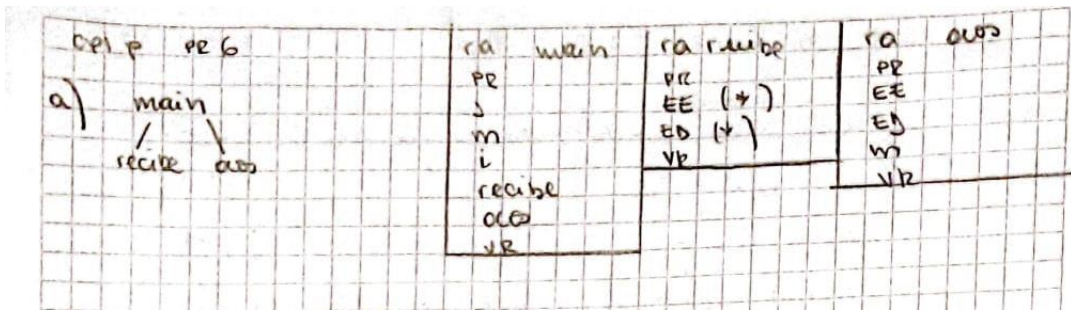 PR 6
a)
main
recibe acos
ra main
PR
J
m
i
recibe
acos
VR
ra recibe
PR
EE (*)
ED (*)
VR
ra acos
PR
EE
ED
m
VR